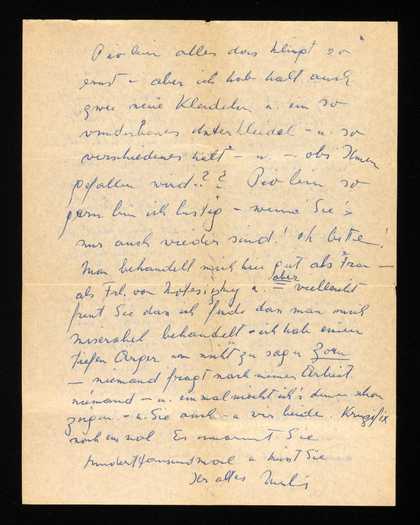 Pio lein alles das klingt so
ernst – aber ich hab halt auch
zwei neue Kleideln u. ein so
wunderbares Unterkleidel – u. so
verschiedenes halt – u. – obs Ihnen
gefallen wird?? Pio lein so
gern bin ich lustig – wenn Sie's
nur auch wieder sind! oh bitte!
Man behandelt mich hier gut als Frau –
als Frl. von Motesiczky u. – aber vielleicht
freut Sie das ich finde das man mich
miserabel behandelt – ich hab einen
tiefen Ärger um nicht zu sagen Zorn
– niemand fragt nach meiner Arbeit
niemand – u. einmal möcht ich's denen schon
zeigen. – u. Sie auch – u wir beide. Kruzifix
noch ein mal Es umarmt Sie
hunderttausendmal u küsst Sie
Ihr altes